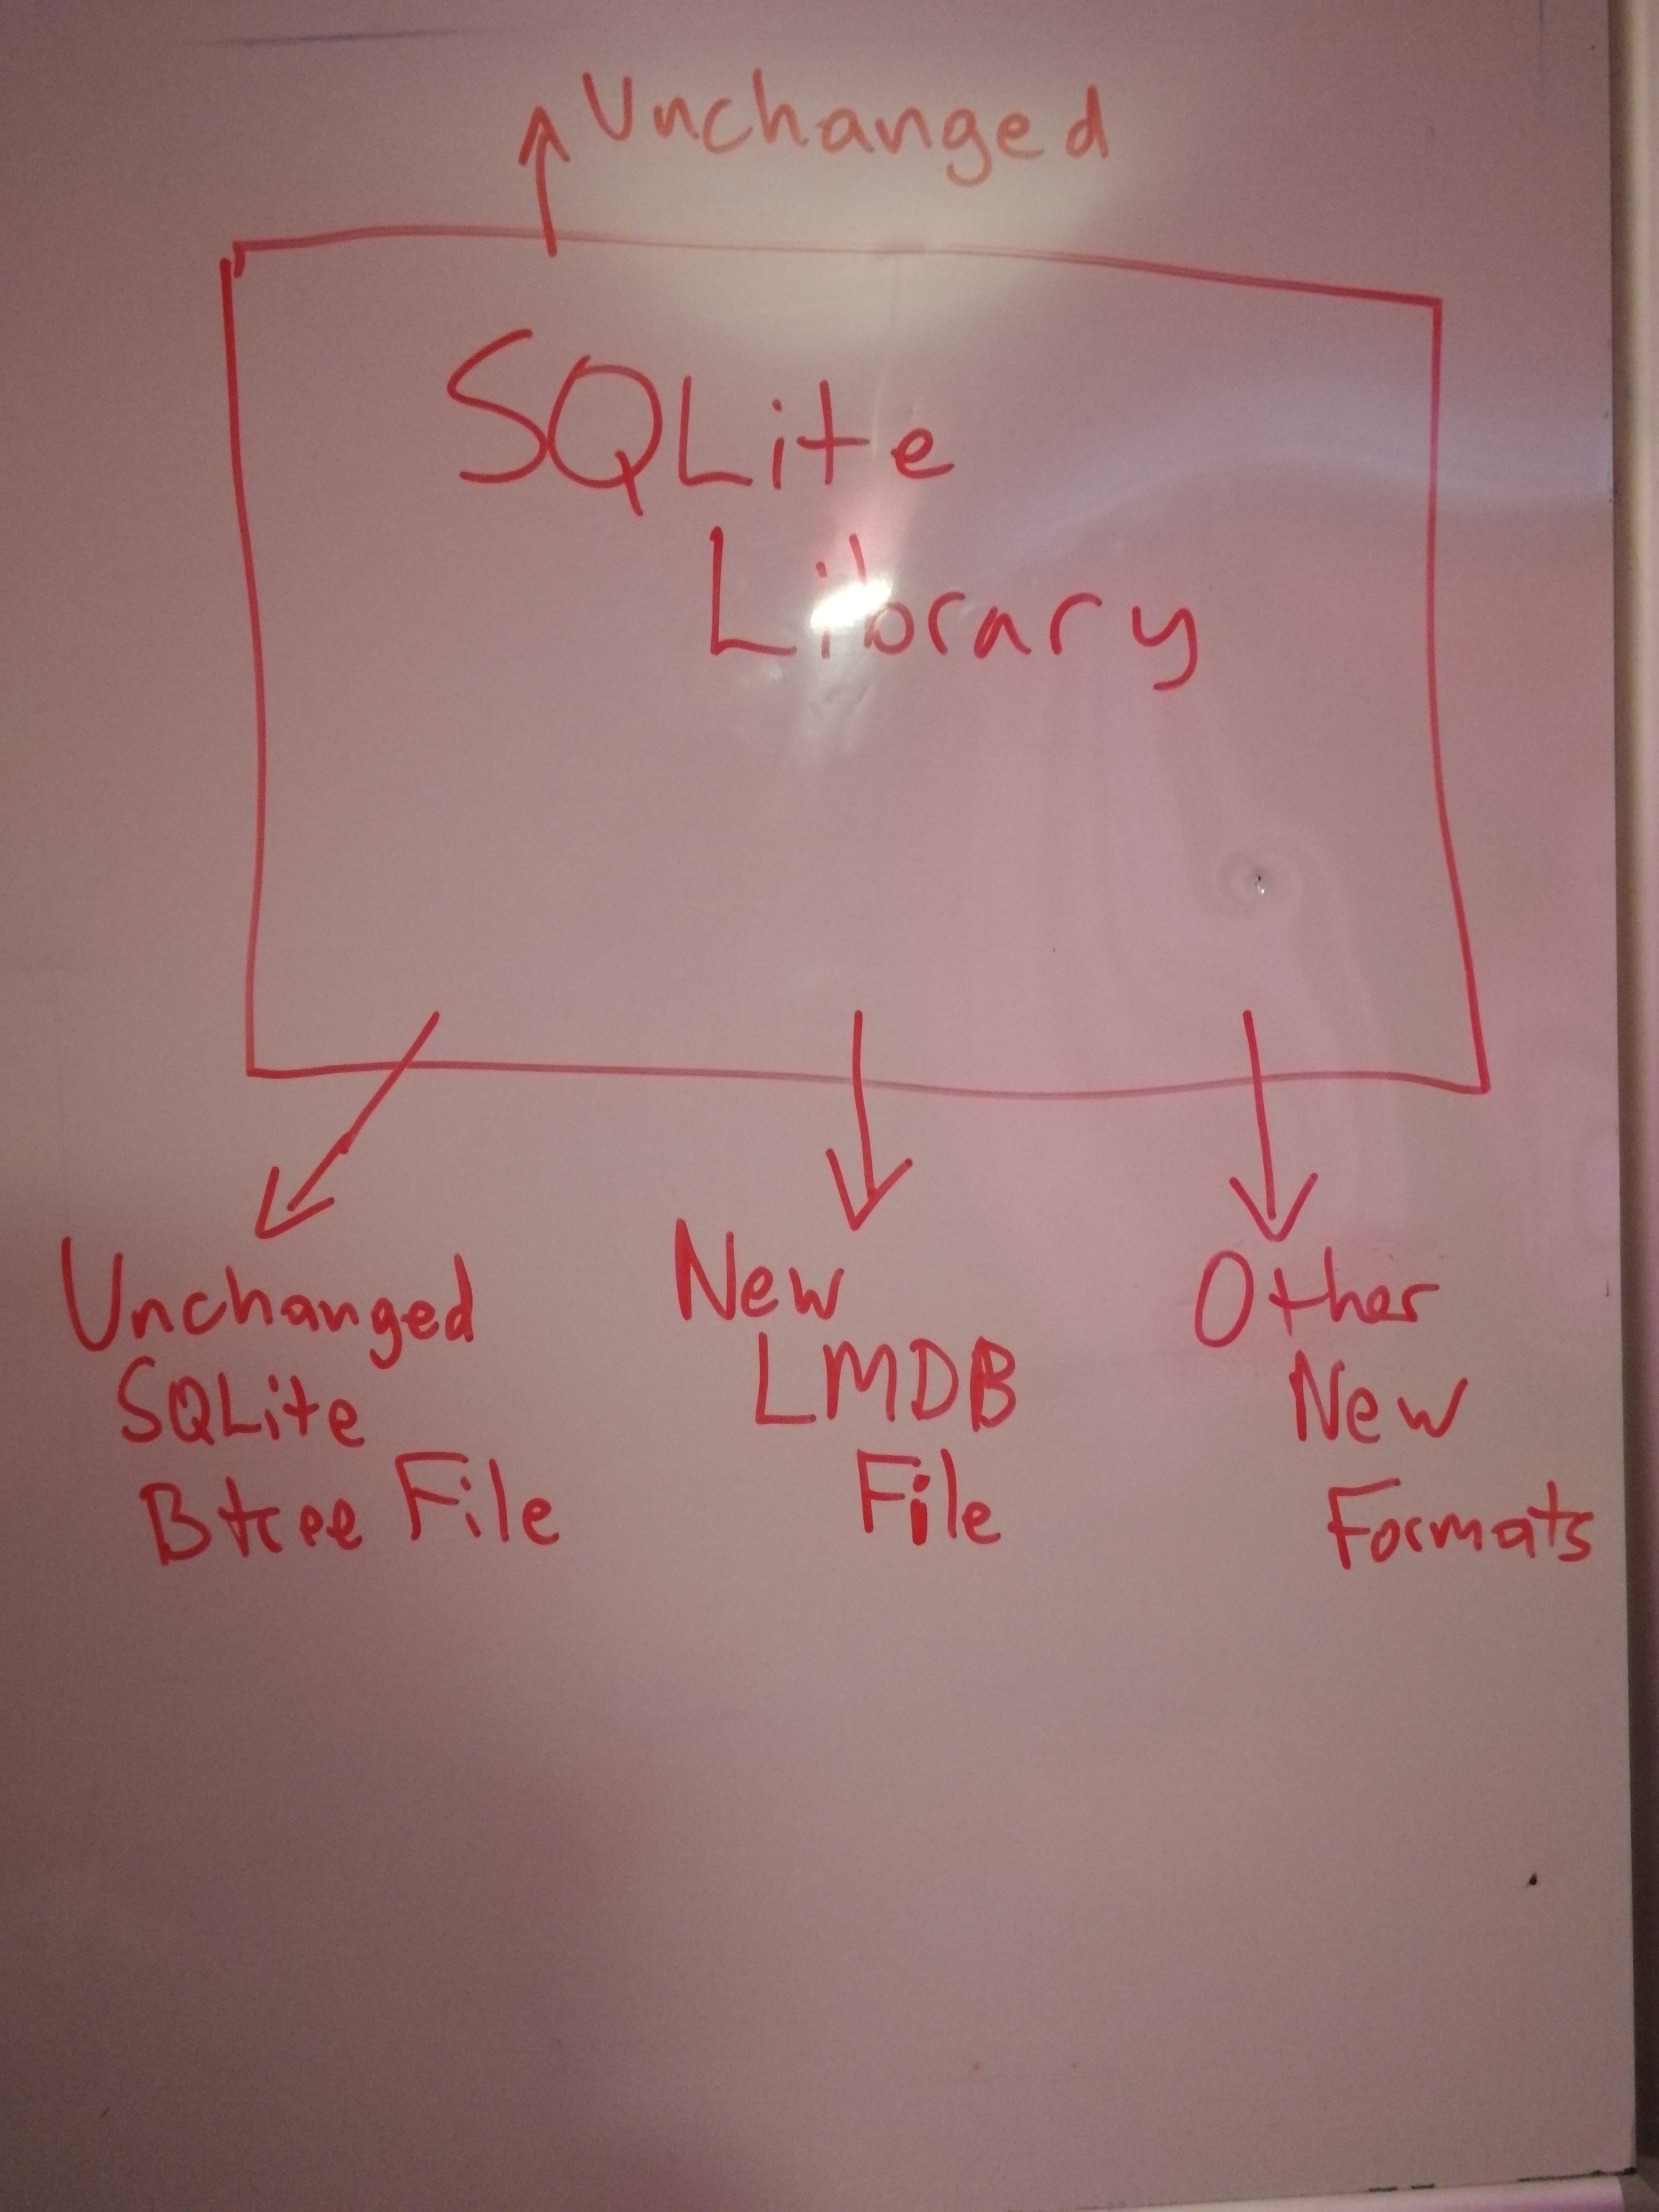 Unchanged
SQLite
Library
Unchanged
SQLite
Btree File
New
LMDB
File
Other
New
Formats